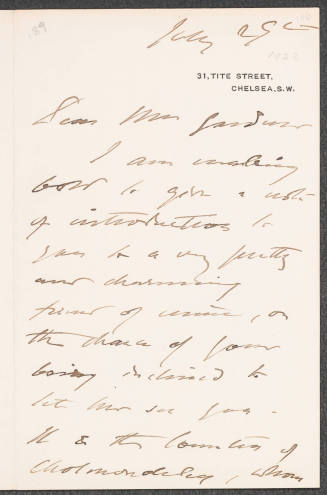 July 29th
31, TITE STREET,
CHELSEA. S.W.
Dear Mrs Gardner
I am making
bold to give a note
of introduction to
you to a very pretty
and charming
friend of mine, on
the chance of your
being inclined to
let her see you.
It is the Countess of
Cholmondeley, whom